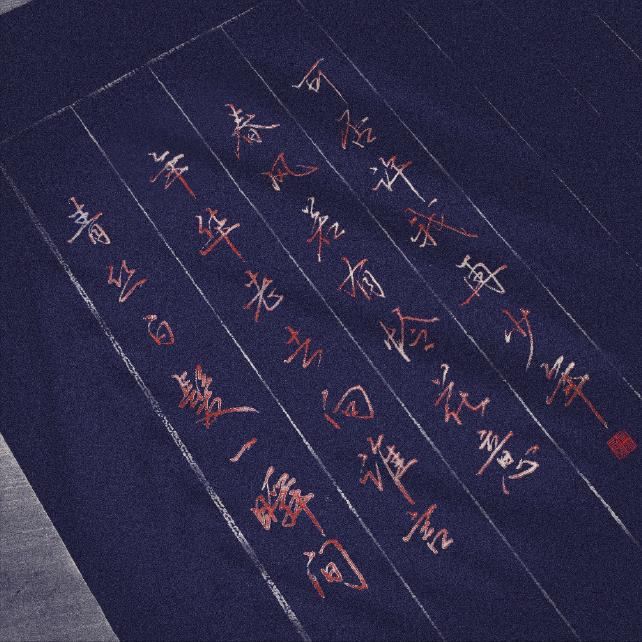 青丝白髮一瞬间
年华老去向谁言
春风若有怜花意
可否许我再少年